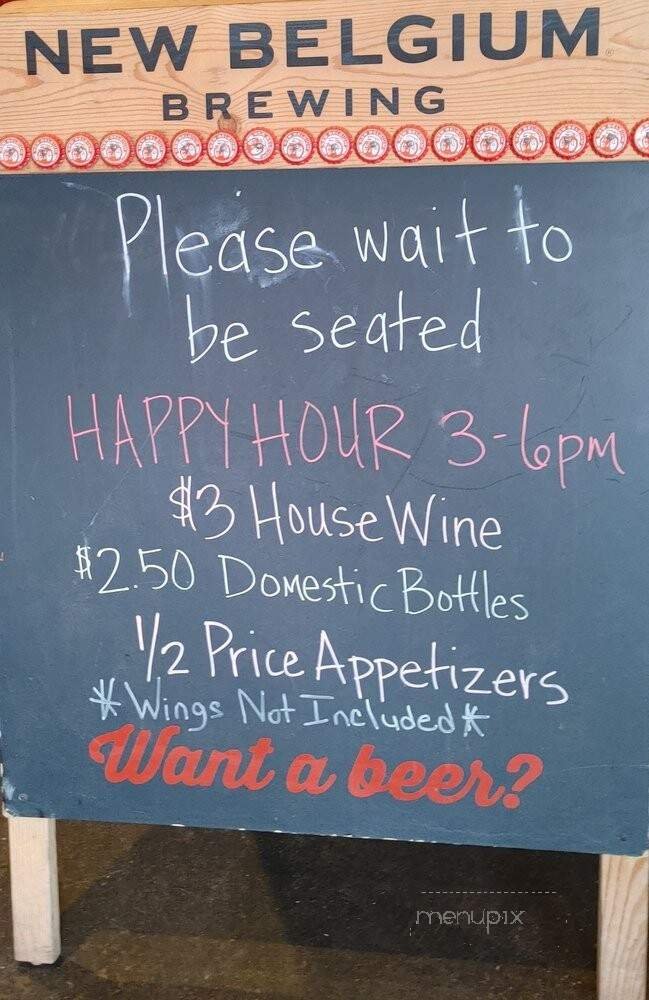 NEW BELGIUM
BREWING
Please wait to
be seated
HAPPY HOUR 3-6pm
$3 House Wine
$2.50 Domestic Bottles
1/2 Price Appetizers
*Wings Not Included*
Want a beer?
menupix